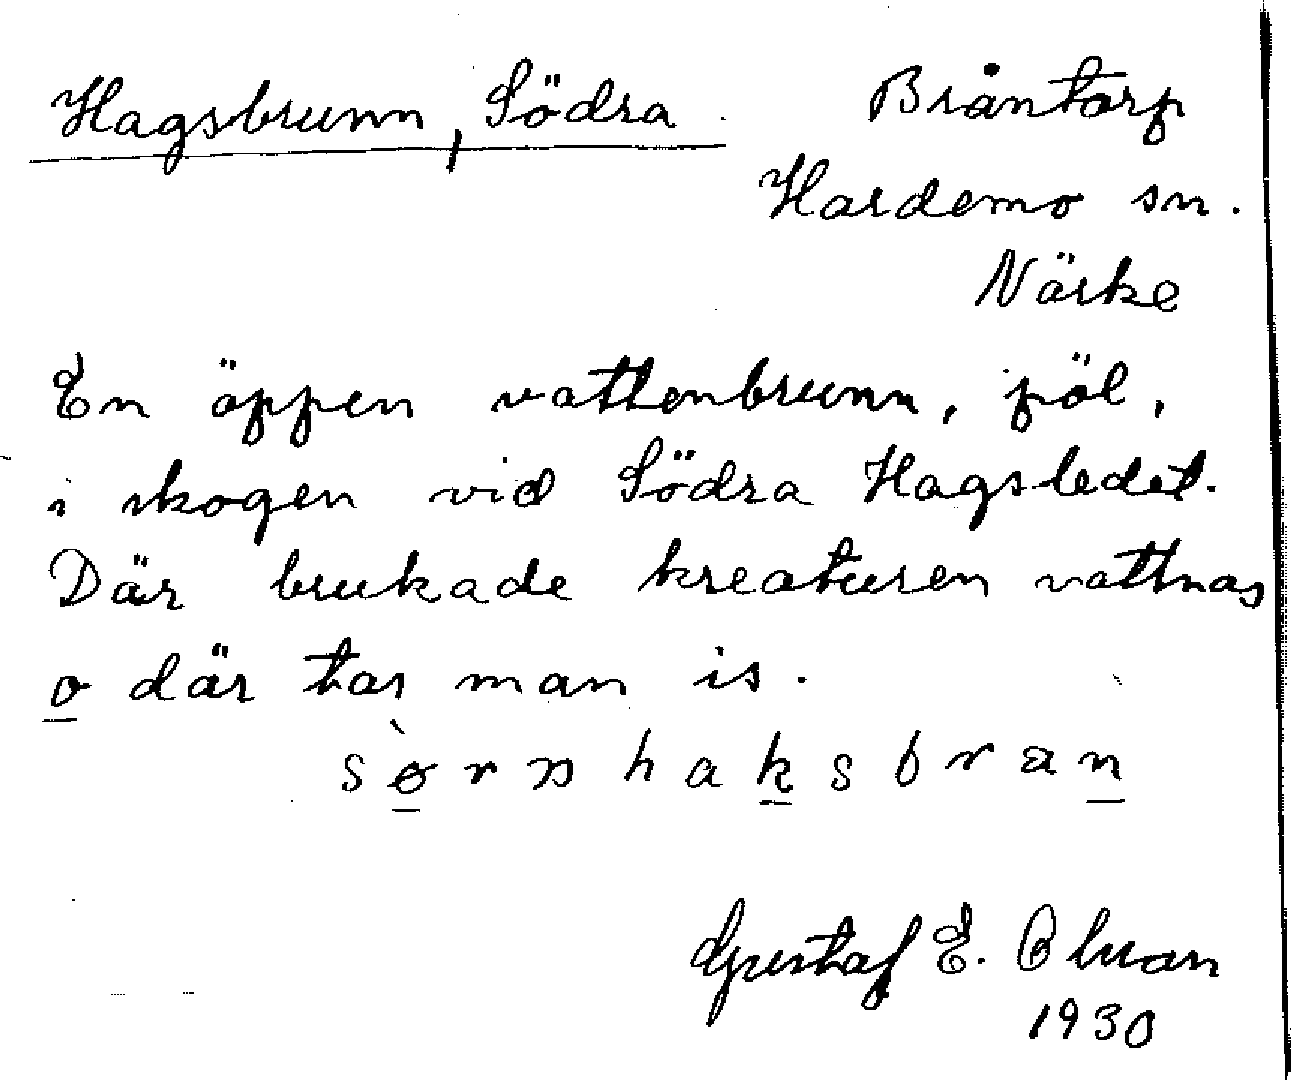 Hagsbrunn, Södra
Bråntorp
Hardemo sn.
Närke
En öppen vattenbrunn, pöl,
i skogen vid Södra Hagsledet.
Där brukade kreaturen vattnas
o där tar man is.
Gustaf E. Olsson
1930